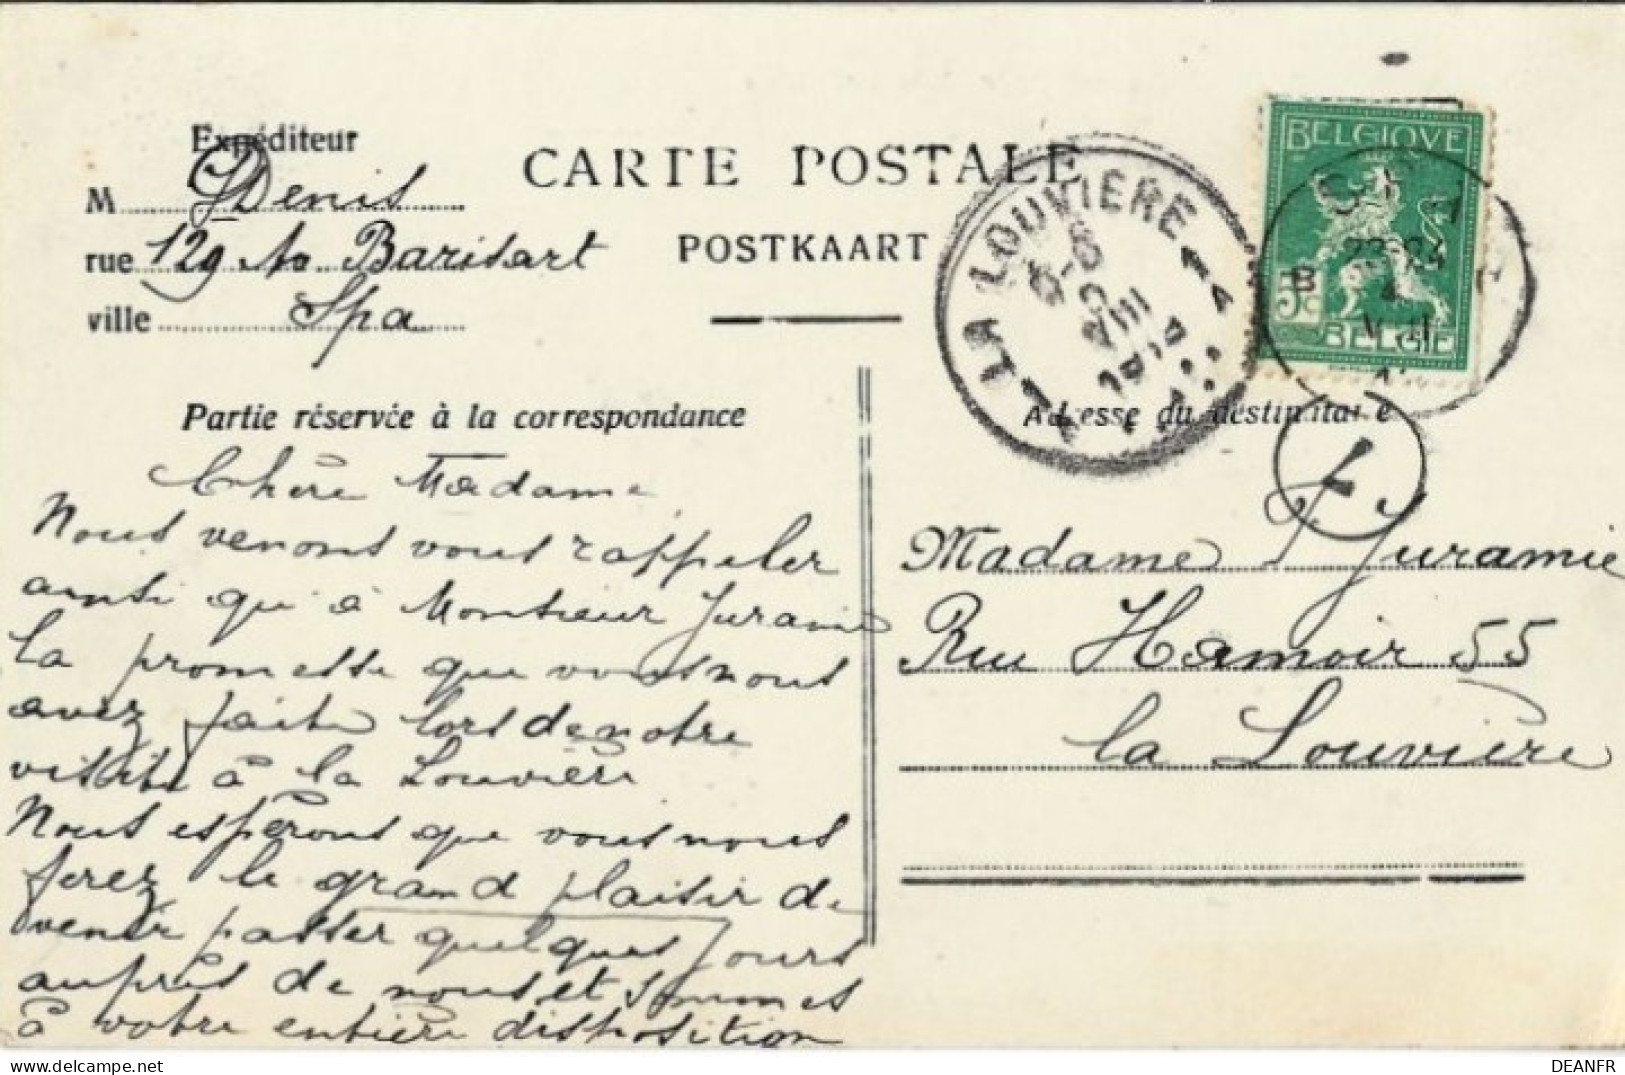 Expéditeur
CARTE POSTALE
M Denis
rue 129 Av Barisart
POSTKAART
ville Spa
LA LOUVIERE
8-9
5
VIII
1914
BELGIQUE
5c
BELGIE
23-24
VIII
Partie réservée à la correspondance
Adresse du destinataire
Chère Madame
Nous venons vous rappeler
ainsi qu'à Monsieur Juramie
la promesse que vous nous
avez faite lors de notre
visite à la Louvière
Nous espérons que vous nous
ferez le grand plaisir de
venir passer quelques jours
auprès de nous et sommes
à votre entière disposition
Madame Juramie
Rue Hamoir 55
la Louvière
DEANFR